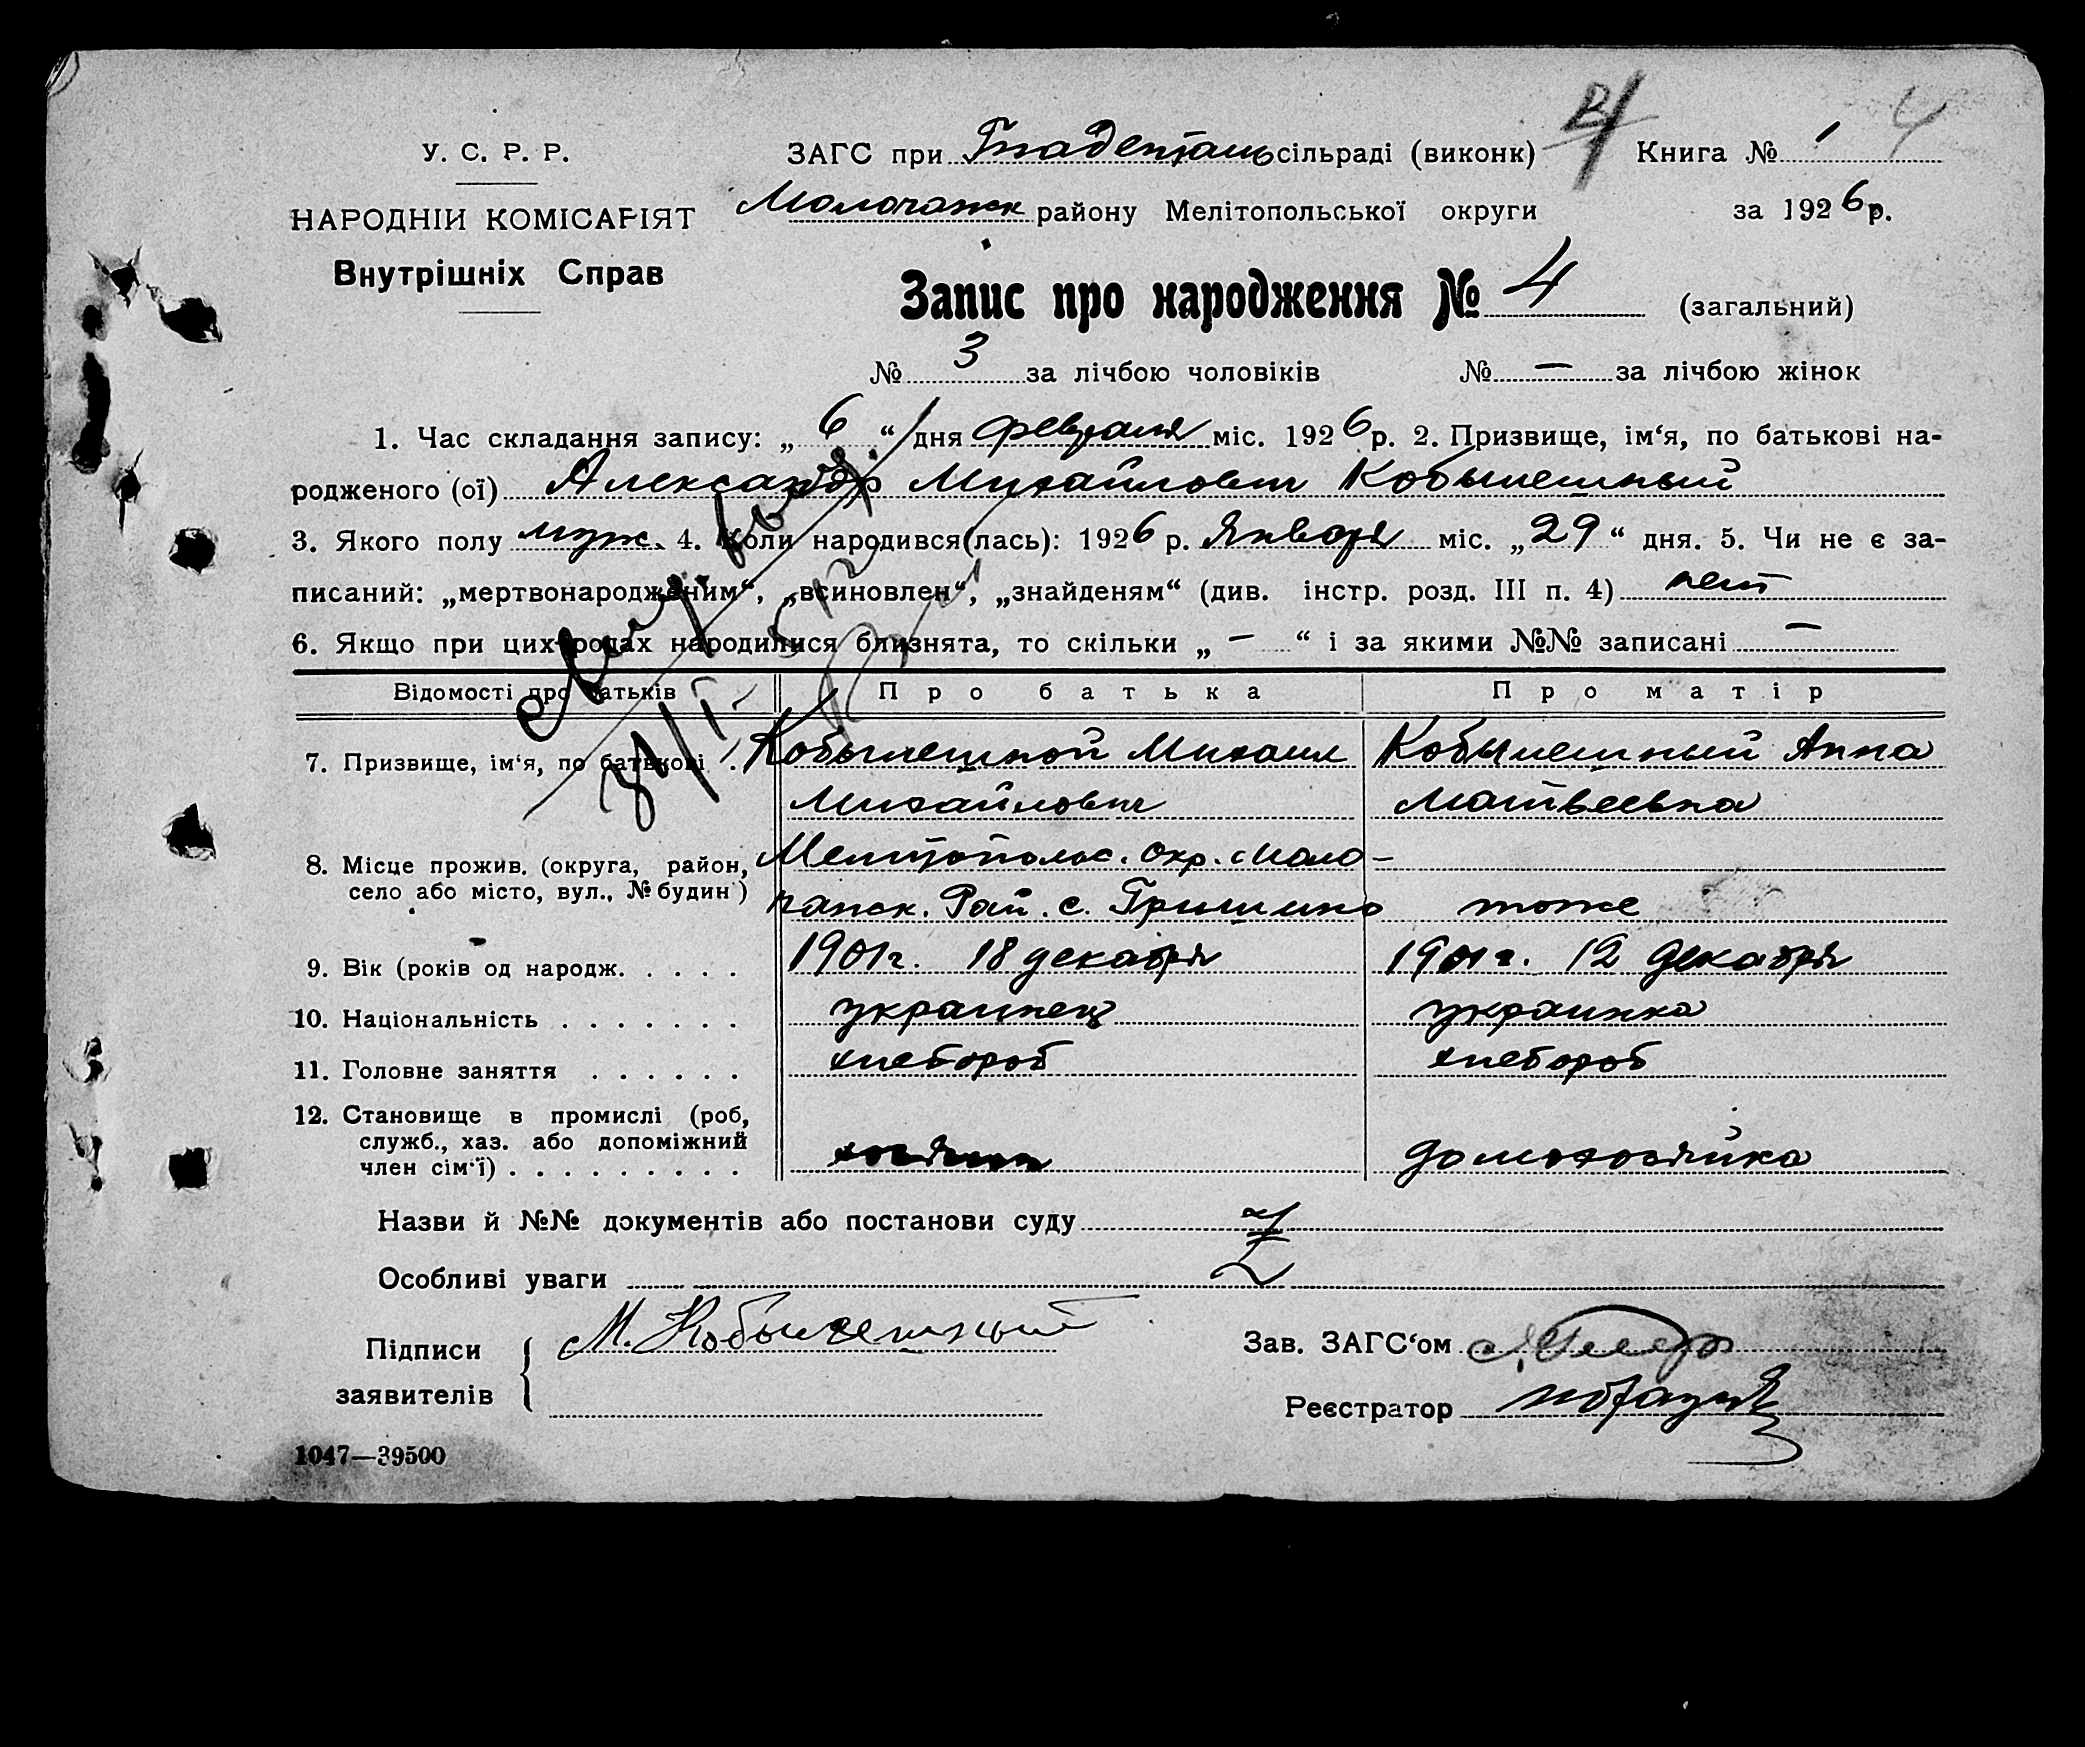 4
У. С. Р. Р.
ЗАГС при Гнаденталь сільраді (виконк) Книга № 1
НАРОДНІЙ КОМІСАРІЯТ
Молочанск району Мелітопольської округи за 1926 р.
Внутрішніх Справ
Запис про народження № 4 (загальний)
№ 3 за лічбою чоловіків № — за лічбою жінок
1. Час складання запису: „ 6 “ дня февраля міс. 1926 р. 2. Призвище, ім‘я, по батькові на-
родженого (ої) Александр Михайлович Кобылешный
3. Якого полу муж. 4. Коли народився(лась): 1926 р. Января міс. „ 29 “ дня. 5. Чи не є за-
писаний: „мертвонародженим“, „всиновлен“, „знайденям“ (див. інстр. розд. III п. 4) нет
6. Якщо при цих родах народилися близнята, то скільки „ — “ і за якими №№ записані —
Відомості про батьків Про батька Про матір
7. Призвище, ім‘я, по батькові . Кобылешной Михаил Кобылешный Анна
Михайлович Матвеевна
8. Місце прожив. (округа, район, Мелитопольс. Окр. Моло-
село або місто, вул., № будин) чанск. Рай. с. Гришино тоже
9. Вік (років од народж. . . . . 1901 г. 18 декабря 1901 г. 12 декабря
10. Національність . . . . . . . украинец украинка
11. Головне заняття . . . . . . хлебороб хлебороб
12. Становище в промислі (роб,
служб., хаз. або допоміжний
член сім‘ї) . . . . . . . . . хозяин домохозяйка
Назви й №№ документів або постанови суду
Особливі уваги
Підписи М. Кобылешный Зав. ЗАГС‘ом
заявителів Реєстратор
1047—39500